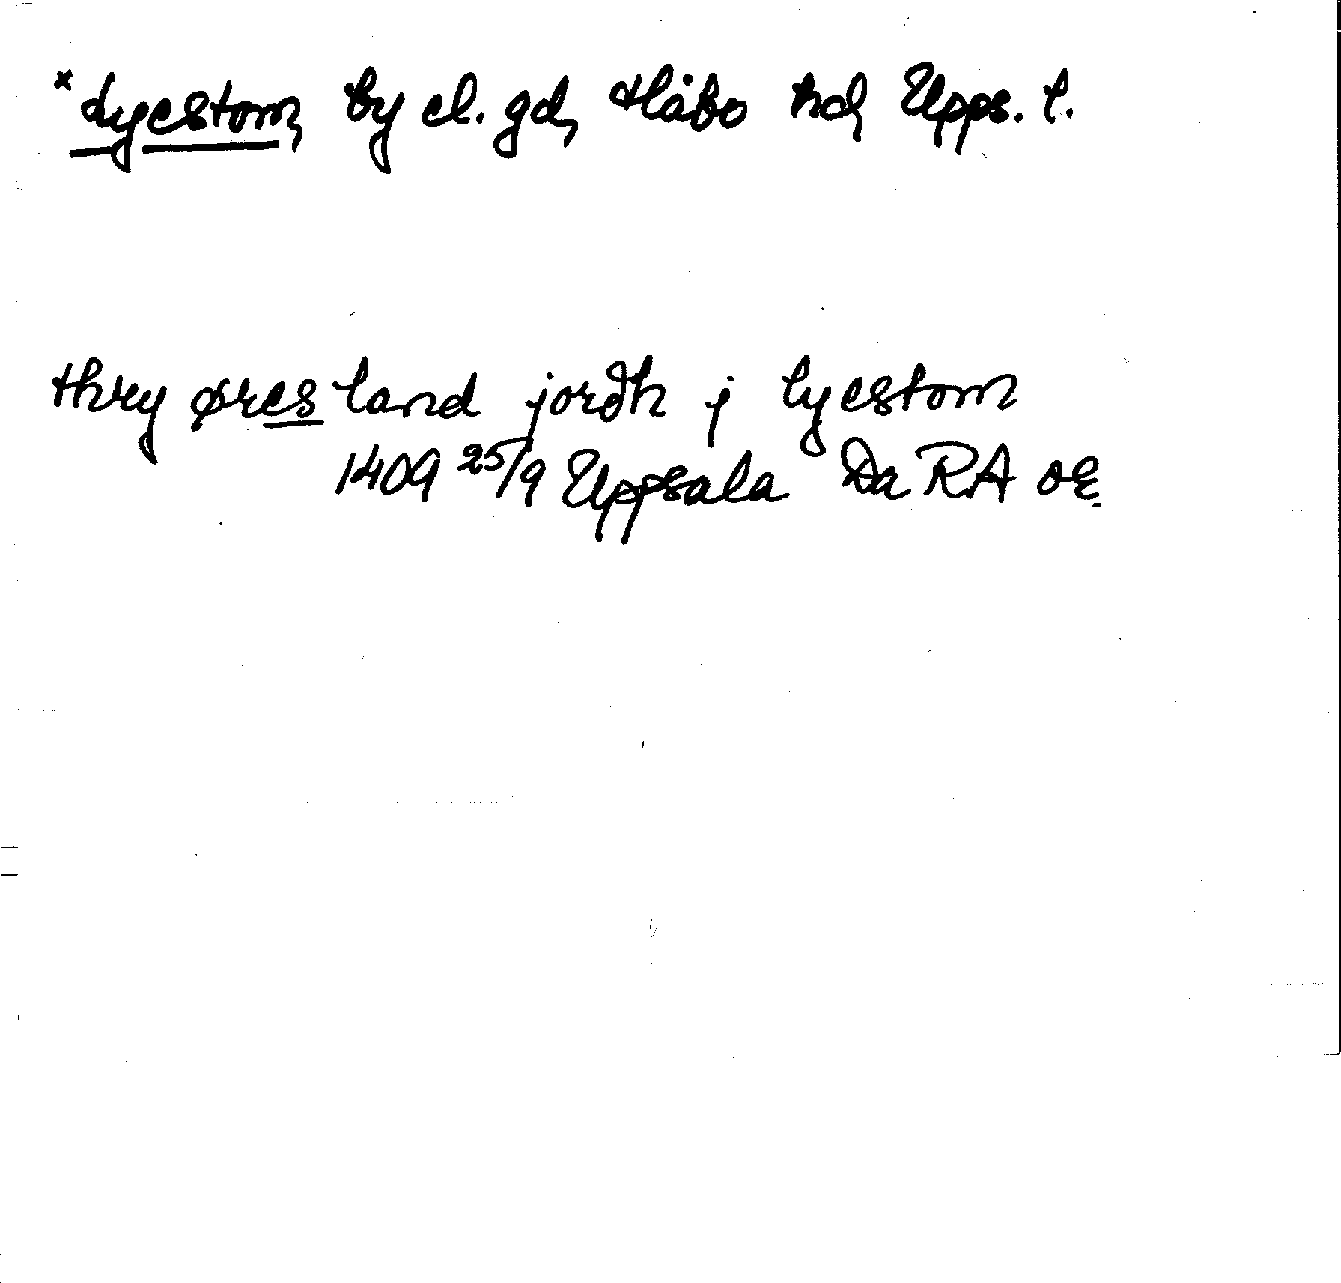 *Lyestom, by el. gd, Håbo hd, Upps. l.
thry øres land jordh j lyestom
1409 25/9 Uppsala Da RA or